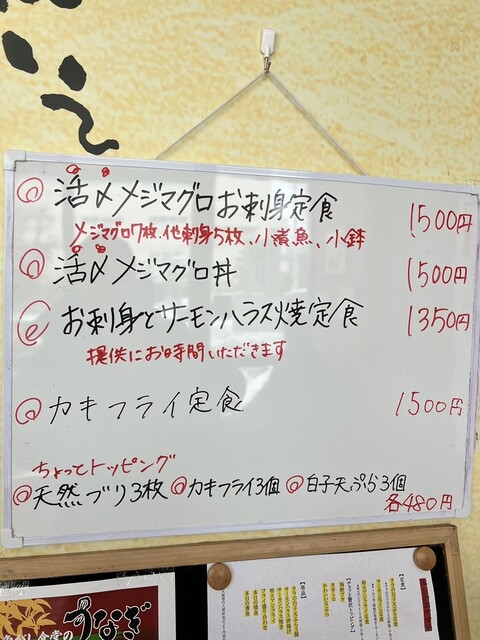 いえ
活〆メジマグロお刺身定食 1500円
メジマグロ7枚、他刺身5枚、小煮魚、小鉢
活〆メジマグロ丼 1500円
お刺身とサーモンハラス焼定食 1350円
提供にお時間いただきます
カキフライ定食 1500円
ちょっとトッピング
天然ブリ3枚 カキフライ3個 白子天ぷら3個
各480円
うなぎ